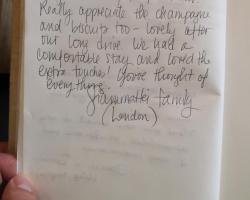 Really appreciate the champagne
and biscuits too - lovely after
our long drive. We had a
comfortable stay and loved the
extra touches! You've thought of
everything.
family
(London)